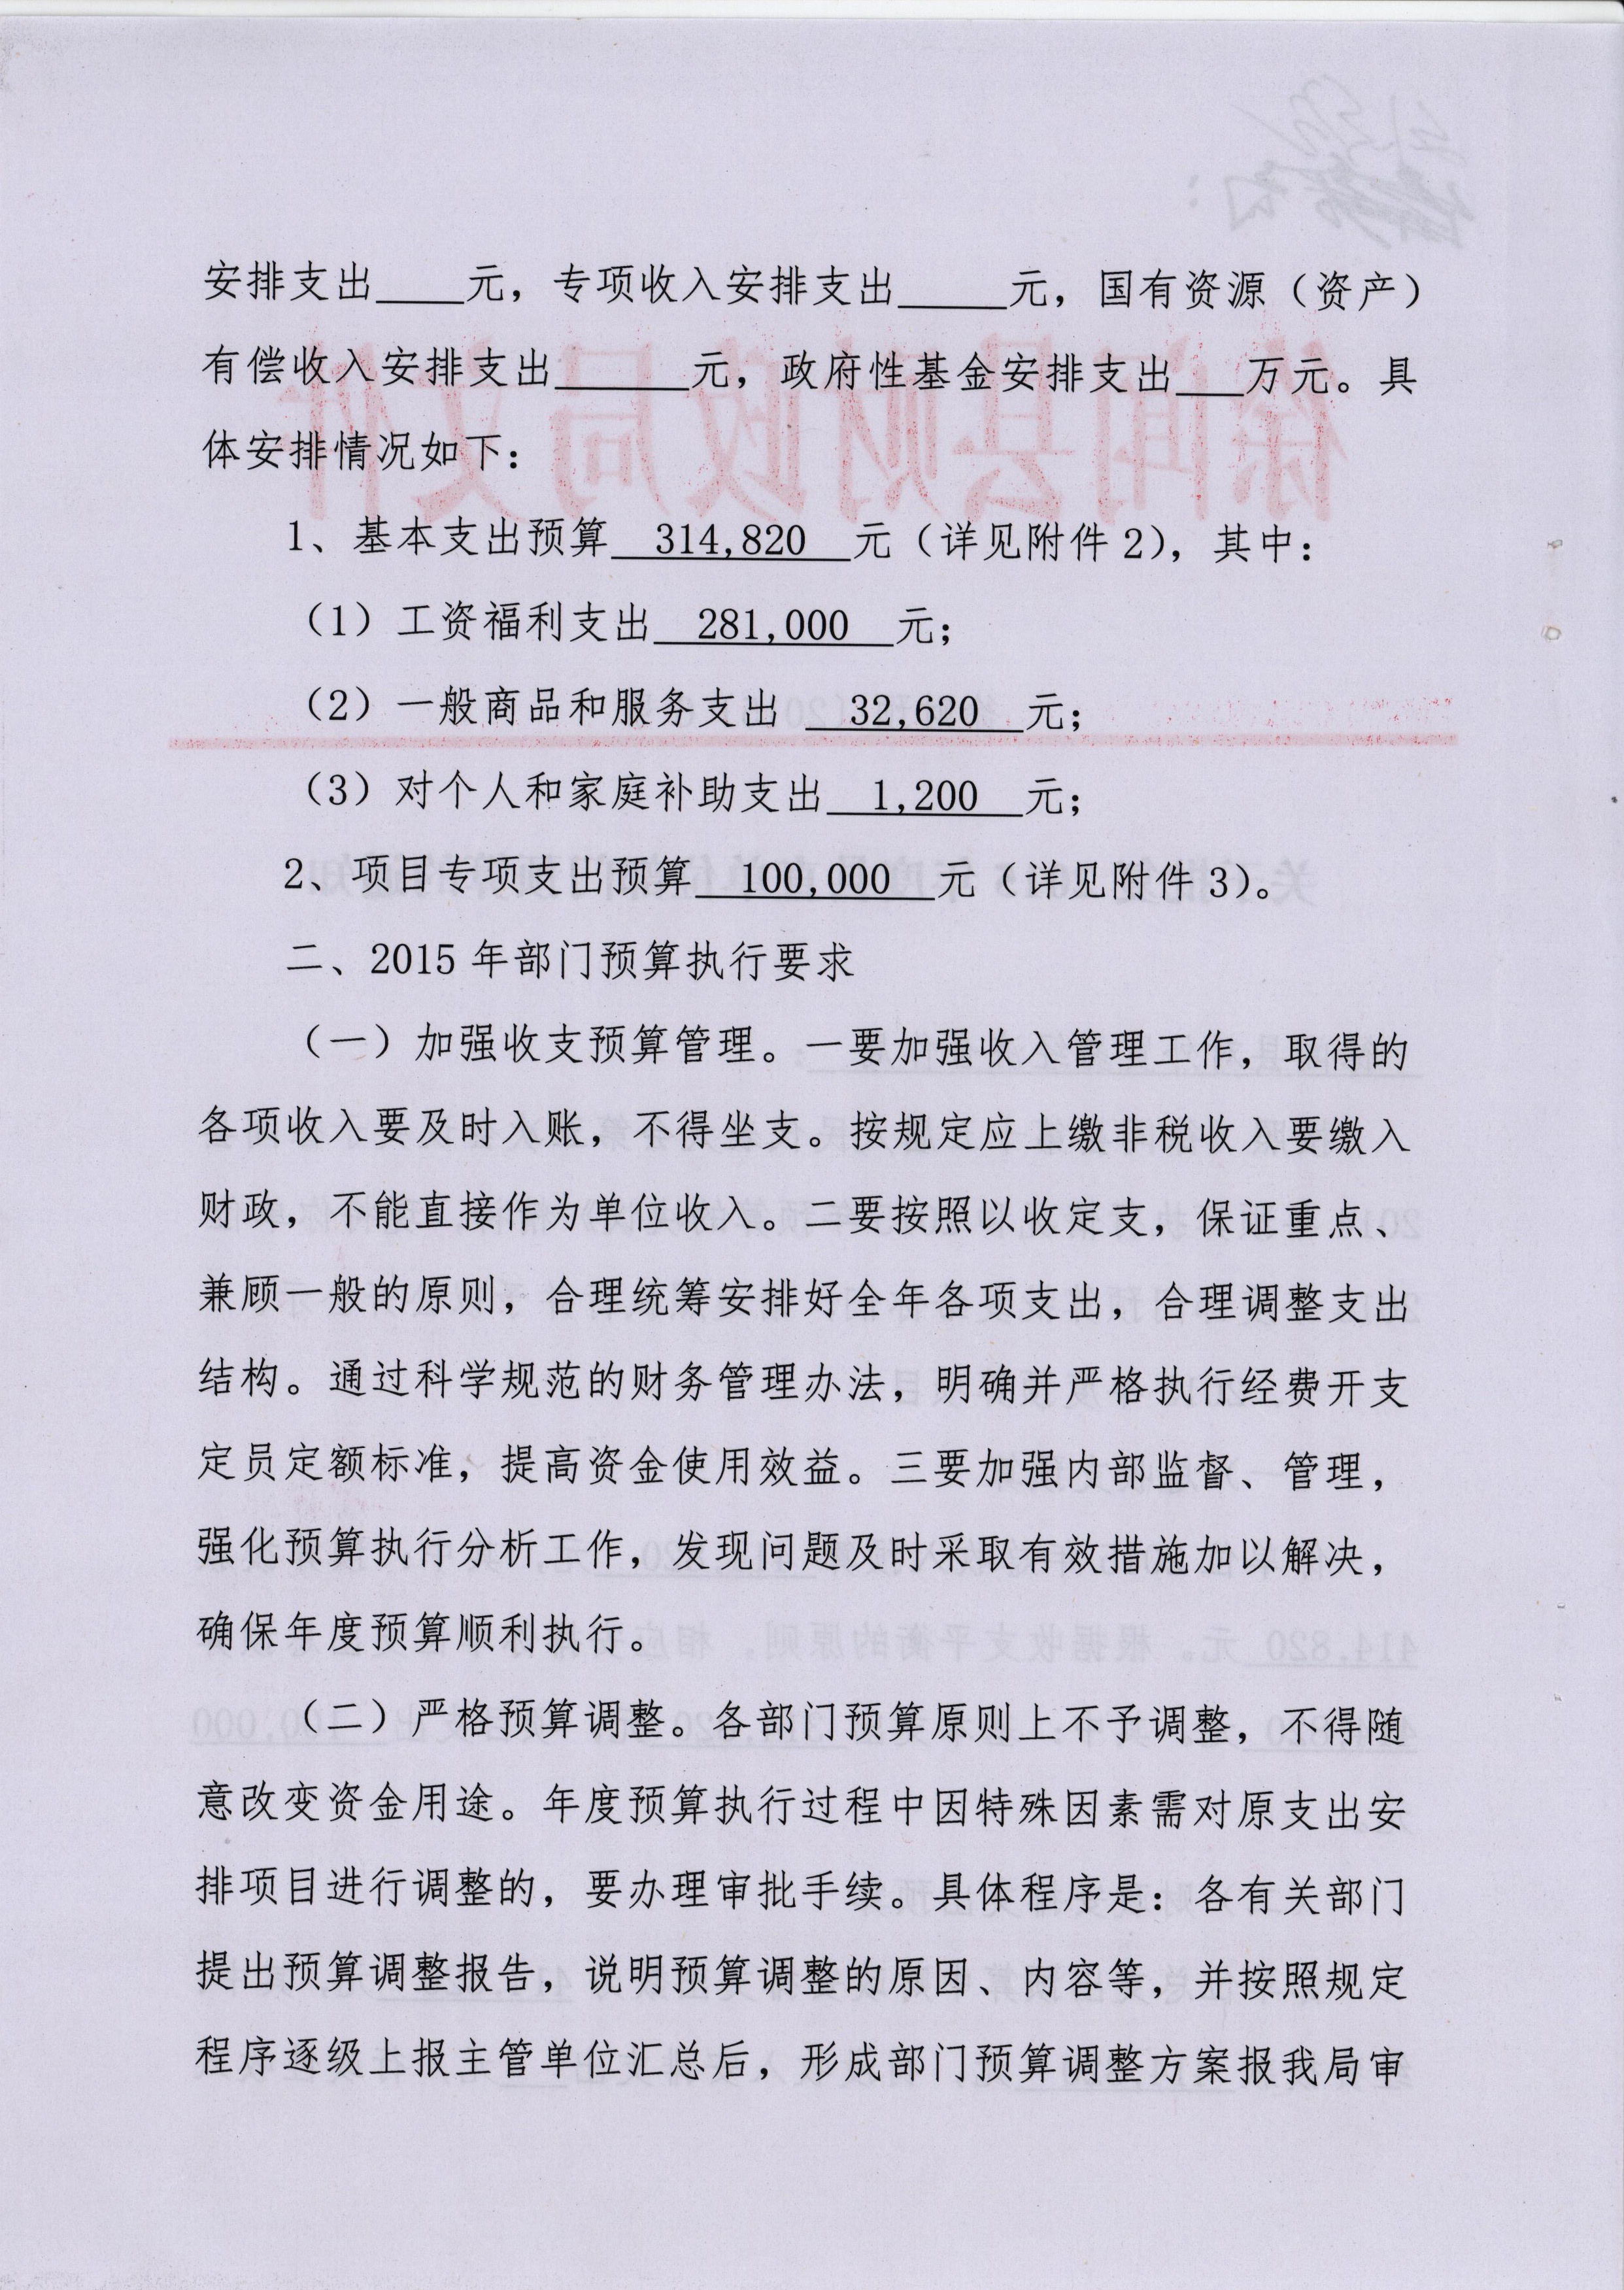 安排支出____元，专项收入安排支出_____元，国有资源（资产）
有偿收入安排支出______元，政府性基金安排支出___万元。具
体安排情况如下：
1、基本支出预算 314,820 元（详见附件2），其中：
（1）工资福利支出 281,000 元；
（2）一般商品和服务支出 32,620 元；
（3）对个人和家庭补助支出 1,200 元；
2、项目专项支出预算 100,000 元（详见附件3）。
二、2015年部门预算执行要求
（一）加强收支预算管理。一要加强收入管理工作，取得的
各项收入要及时入账，不得坐支。按规定应上缴非税收入要缴入
财政，不能直接作为单位收入。二要按照以收定支，保证重点、
兼顾一般的原则，合理统筹安排好全年各项支出，合理调整支出
结构。通过科学规范的财务管理办法，明确并严格执行经费开支
定员定额标准，提高资金使用效益。三要加强内部监督、管理，
强化预算执行分析工作，发现问题及时采取有效措施加以解决，
确保年度预算顺利执行。
（二）严格预算调整。各部门预算原则上不予调整，不得随
意改变资金用途。年度预算执行过程中因特殊因素需对原支出安
排项目进行调整的，要办理审批手续。具体程序是：各有关部门
提出预算调整报告，说明预算调整的原因、内容等，并按照规定
程序逐级上报主管单位汇总后，形成部门预算调整方案报我局审